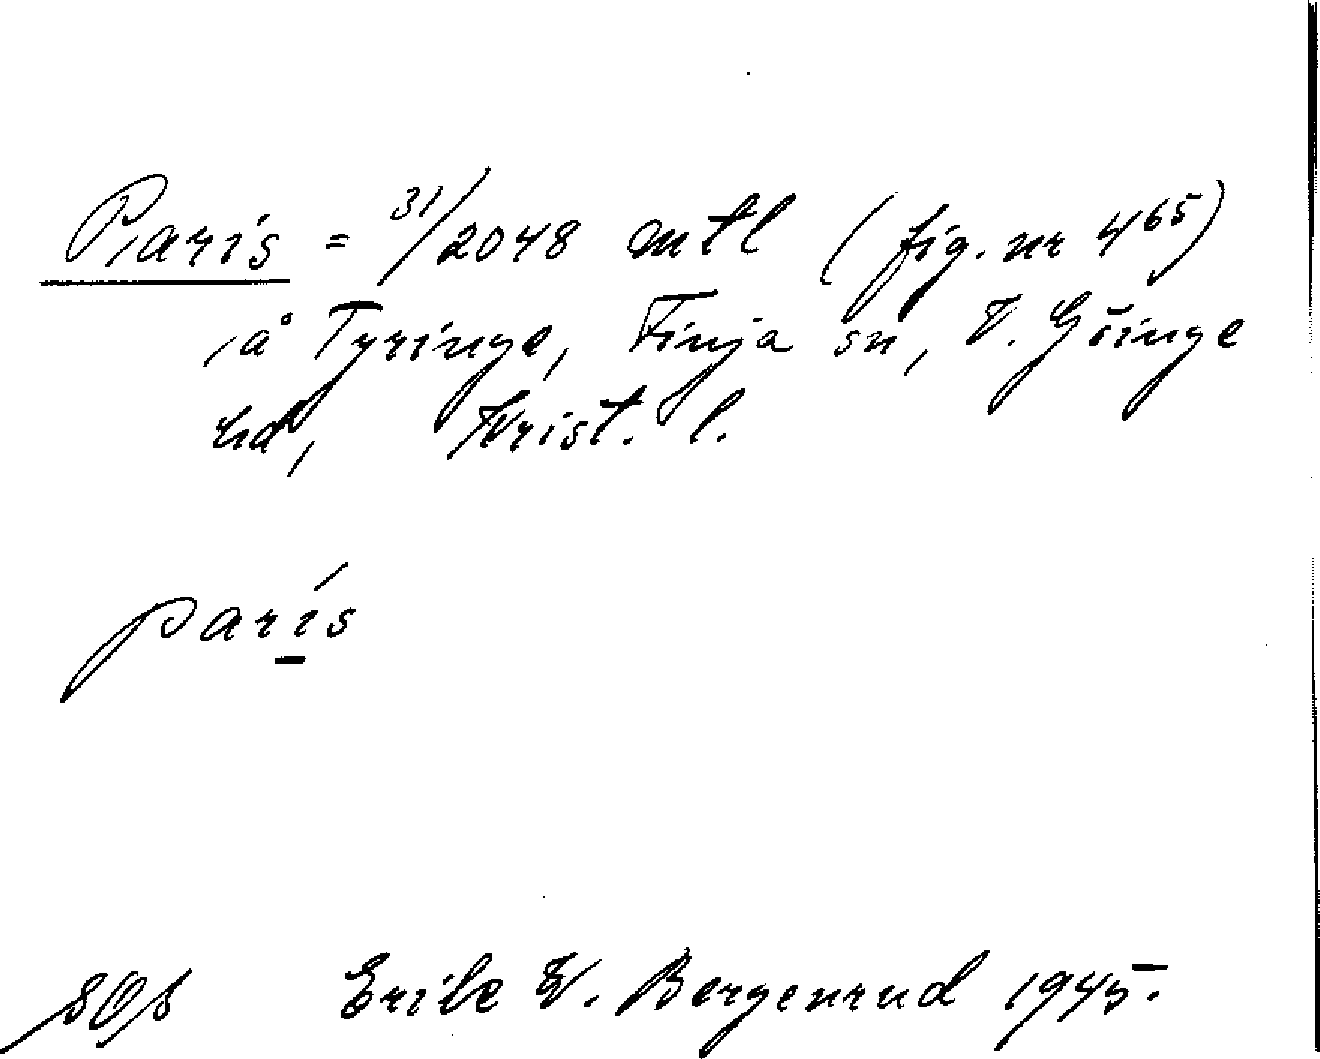 Paris = 31/2048 mtl (fig. nr 4⁶⁵)
å Tyringe, Finja sn, V. Göinge
hd, Krist. l.
parís
Erik W. Bergenrud 1945.